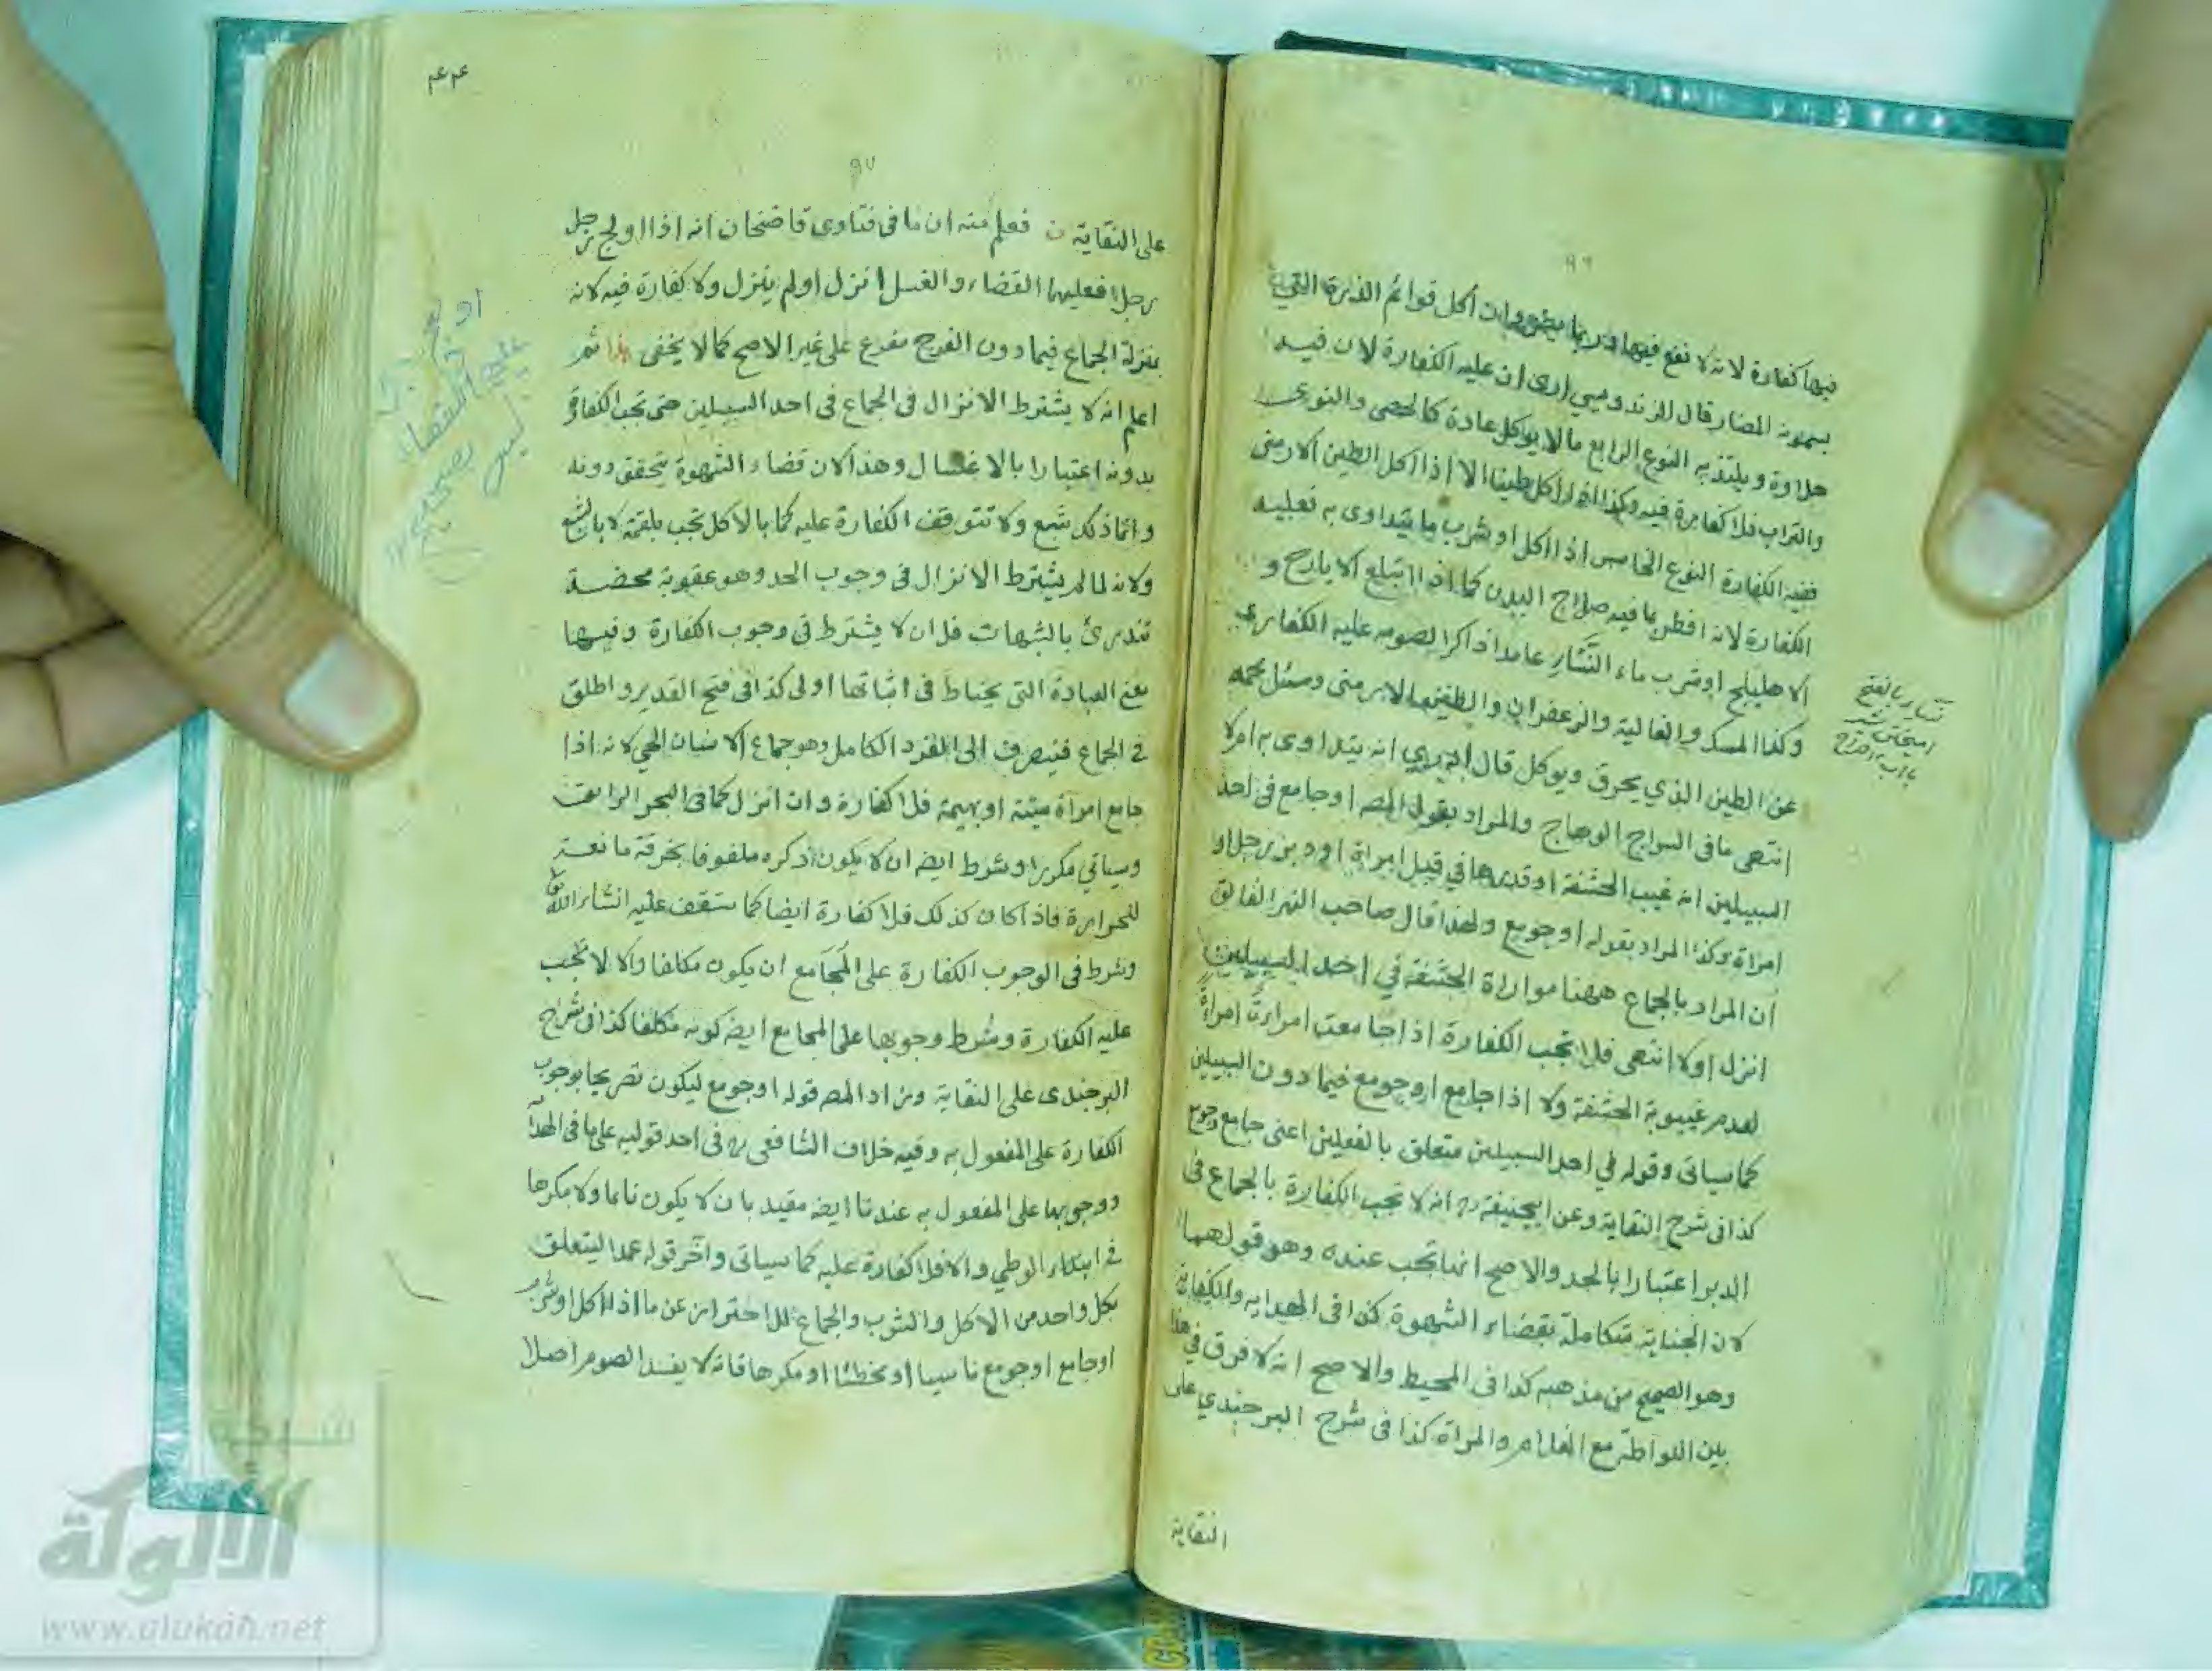 ٩٦
فيها كفارة لانه لا نفع فيها وربما يضر وان أكل قوائم الذرة التي
يسمونه المضار قال الزندويسي ارى ان عليه الكفارة لان فيه
حلاوة ويلتذ به النوع الرابع مالا يوكل عادة كالحصى والنوى
والتراب فلا كفارة فيه وكذا اذا اكل طينا الا اذا اكل الطين الارمنى
ففيه الكفارة النوع الخامس اذا اكل او شرب ما يتداوى به فعليه
الكفارة لانه افطر بما فيه صلاح البدن كما اذا ابتلع الايارج و
الاهليلج او شرب ماء النشار عامدا ذاكرا لصومه عليه الكفارة
وكذا المسك والغالية والزعفران والطين الارمنى وسئل محمد
عن الطين الذي يحرق ويوكل قال ادري انه يتداوى به ام لا
انتهى ما فى السراج الوهاج والمراد بقول المص او جامع فى احد
السبيلين انه غيب الحشفة او قدرها في قبل امراة او دبر رجل او
امراة وكذا المراد بقوله او جومع ولهذا قال صاحب النهر الفائق
ان المراد بالجماع ههنا مواراة الحشفة في احد السبيلين
انزل اولا انتهى فلا تجب الكفارة اذا جامعت امراة امراة
لعدم غيبوبة الحشفة ولا اذا جامع او جومع فيما دون السبيلين
كما سياتى وقوله في احد السبيلين متعلق بالفعلين اعنى جامع وجومع
كذا فى شرح النقاية وعن ابيحنيفة رح انه لا تجب الكفارة بالجماع فى
الدبر اعتبارا بالحد والاصح انها تجب عنده وهو قولهما
لان الجناية متكاملة بقضاء الشهوة كذا فى الهداية والكفاية
وهو الصحيح من مذهبه كذا فى المحيط والاصح انه لا فرق في هذا
بين اللواطة مع الغلام والمراة كذا فى شرح البرجندي على
النقاية
نشار بالفتح
٩٧
على النقاية فعلم منه ان ما فى فتاوى قاضخان انه اذا اولج رجل
رجلا فعليهما القضاء والغسل انزل اولم ينزل ولا كفارة فيه لانه
بمنزلة الجماع فيما دون الفرج مفرع على غير الاصح كما لا يخفى هذا ثم
اعلم انه لا يشترط الانزال فى الجماع فى احد السبيلين حتى تجب الكفارة
بدونه اعتبارا بالاغتسال وهذا لان قضاء الشهوة يتحقق دونه
وانما ذلك شبع ولا تتوقف الكفارة عليه كما بالاكل تجب بلقمة لا بالشبع
ولانه لما لم يشترط الانزال فى وجوب الحد وهو عقوبة محضة
تندرئ بالشبهات فلان لا يشترط فى وجوب الكفارة وفيها
معنى العبادة التى يحتاط فى اثباتها اولى كذا فى فتح القدير واطلق
فى الجماع فينصرف الى الفرد الكامل وهو جماع الانسان الحي لانه اذا
جامع امراة ميتة او بهيمة فلا كفارة وان انزل كما فى البحر الرايق
وسياتي مكررا وشرط ايضه ان لا يكون ذكره ملفوفا بخرقة مانعة
للحرارة فاذا كان كذلك فلا كفارة ايضا كما ستقف عليه انشاء الله تعالى
وشرط فى الوجوب الكفارة على المجامع ان يكون مكلفا والا لا تجب
عليه الكفارة وشرط وجوبها على المجامع ايضه كونه مكلفا كذا فى شرح
البرجندى على النقاية وزاد المصه قوله او جومع ليكون تصريحا بوجوب
الكفارة على المفعول به وفيه خلاف الشافعى رح فى احد قوليه على ما فى الهداية
ووجوبها على المفعول به عندنا ايضه مقيد بان لا يكون نائما ولا مكرها
فى ابتداء الوطي والا فلا كفارة عليه كما سياتى وآخر قوله عمدا ليتعلق
بكل واحد من الاكل والشرب والجماع للاحتراز عن ما اذا اكل او شرب
او جامع او جومع ناسيا او مخطئا او مكرها فانه لا يفسد الصوم اصلا
اولج
القضاء
ليس بصحيح
شبكة
الألوكة
www.alukah.net